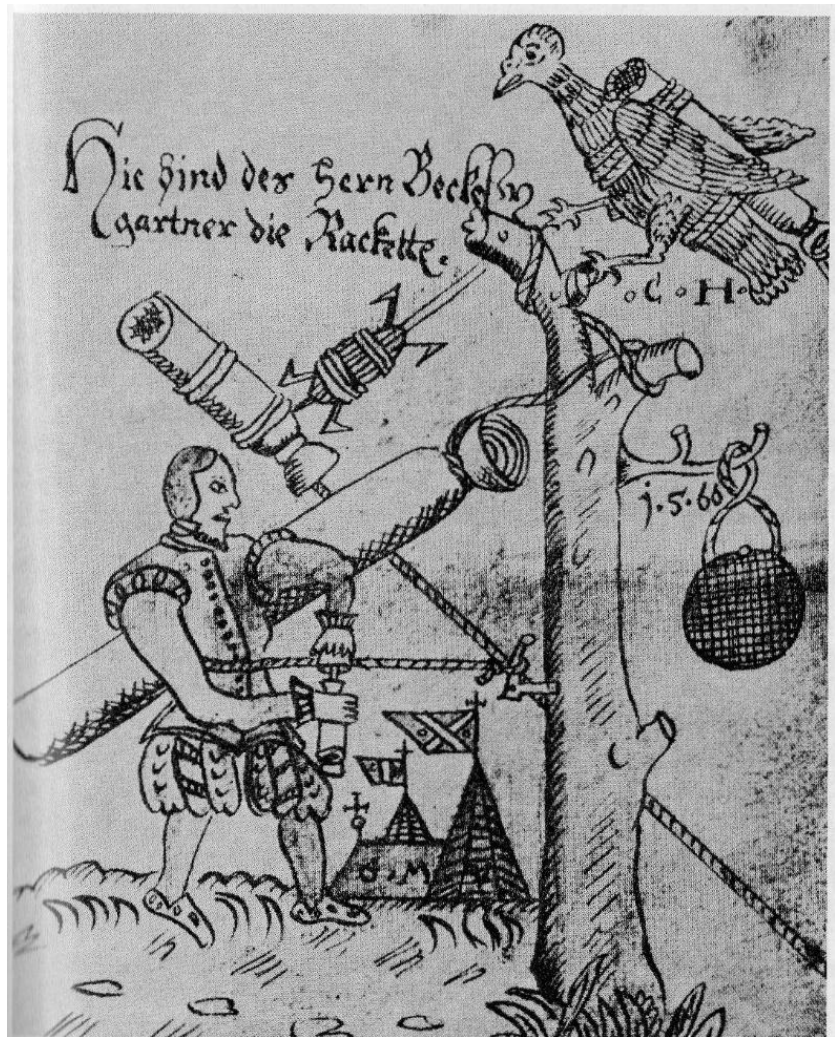 Hie sind des Hern
gartner die Rackette.
. C . H .
j.5.60